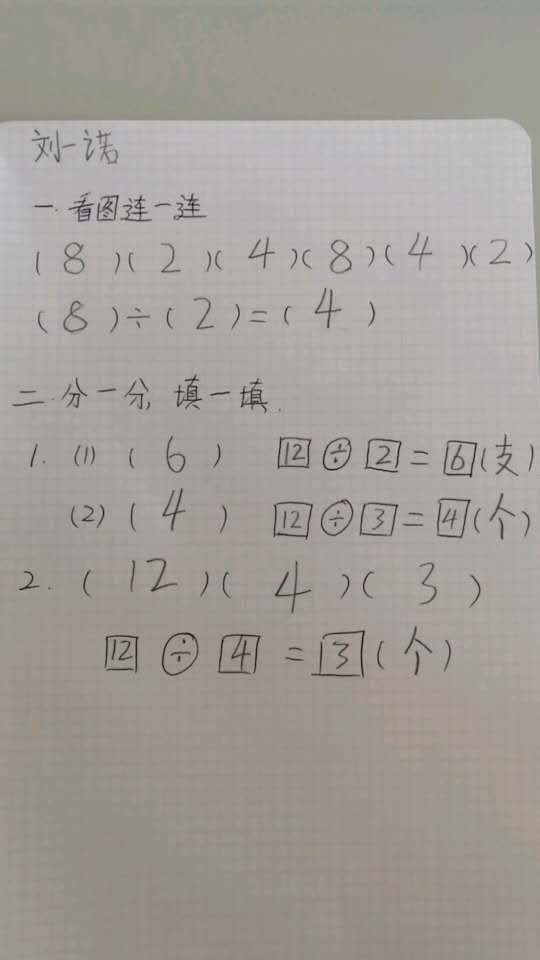 刘一诺
一.看图连一连
(8)(2)(4)(8)(4)(2)
(8)÷(2)=(4)
二.分一分,填一填.
1.(1)(6) 12÷2=6(支)
(2)(4) 12÷3=4(个)
2.(12)(4)(3)
12÷4=3(个)